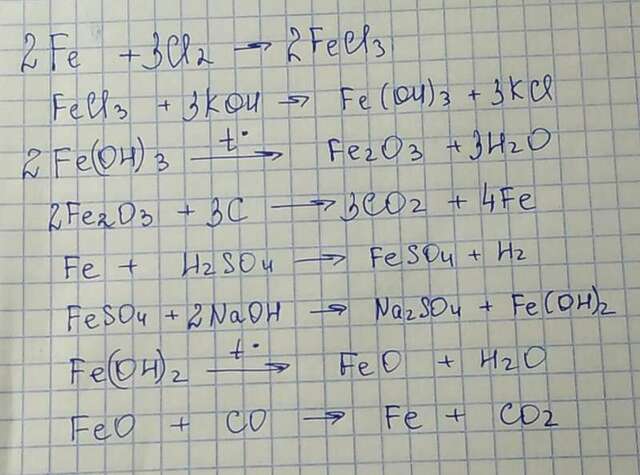 2Fe + 3Cl2 → 2FeCl3
FeCl3 + 3KOH → Fe(OH)3 + 3KCl
2Fe(OH)3 t° → Fe2O3 + 3H2O
2Fe2O3 + 3C → 3CO2 + 4Fe
Fe + H2SO4 → FeSO4 + H2
FeSO4 + 2NaOH → Na2SO4 + Fe(OH)2
Fe(OH)2 t° → FeO + H2O
FeO + CO → Fe + CO2